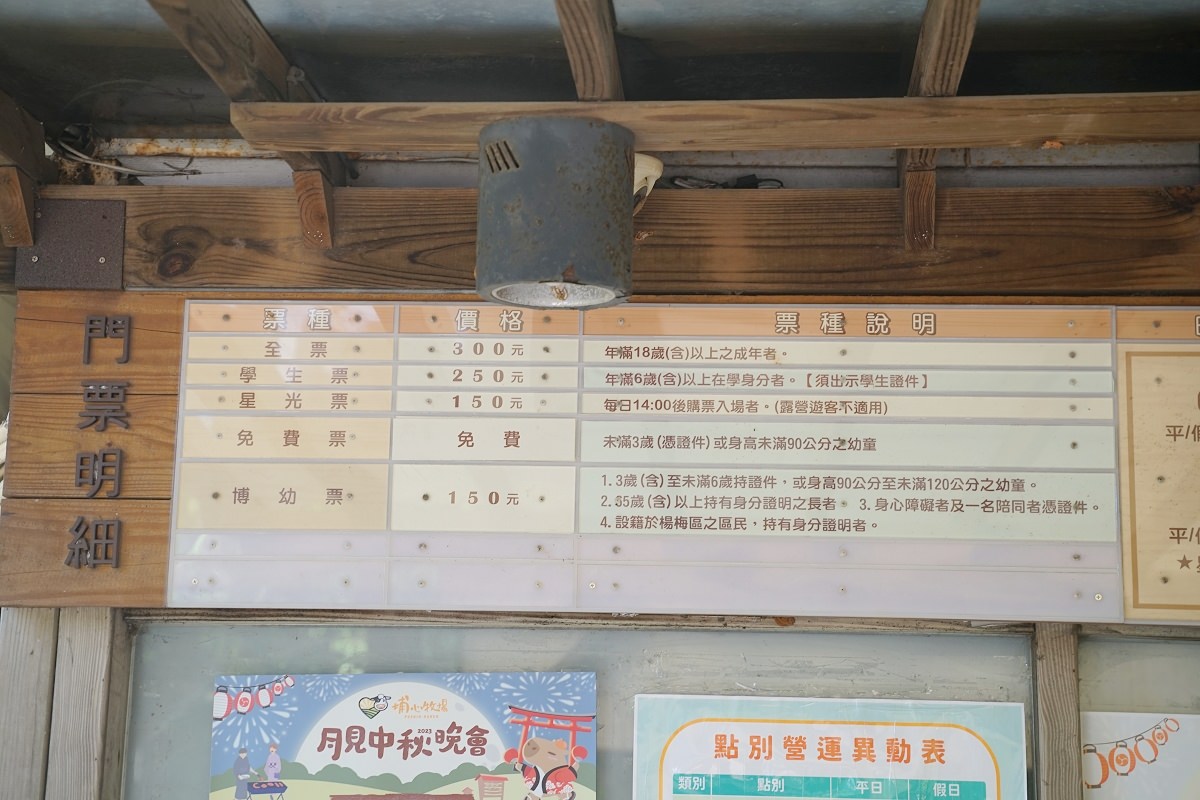 門票明細
票種 價格 票種說明
全票 300元 年滿18歲(含)以上之成年者。
學生票 250元 年滿6歲(含)以上在學身分者。【須出示學生證件】
星光票 150元 每日14:00後購票入場者。(露營遊客不適用)
免費票 免費 未滿3歲(憑證件)或身高未滿90公分之幼童
博幼票 150元 1.3歲(含)至未滿6歲持證件，或身高90公分至未滿120公分之幼童。
2.65歲(含)以上持有身分證明之長者。 3.身心障礙者及一名陪同者憑證件。
4.設籍於楊梅區之區民，持有身分證明者。
平/
平/
★
埔心牧場
2023
月見中秋晚會
點別營運異動表
類別 點別 平日 假日